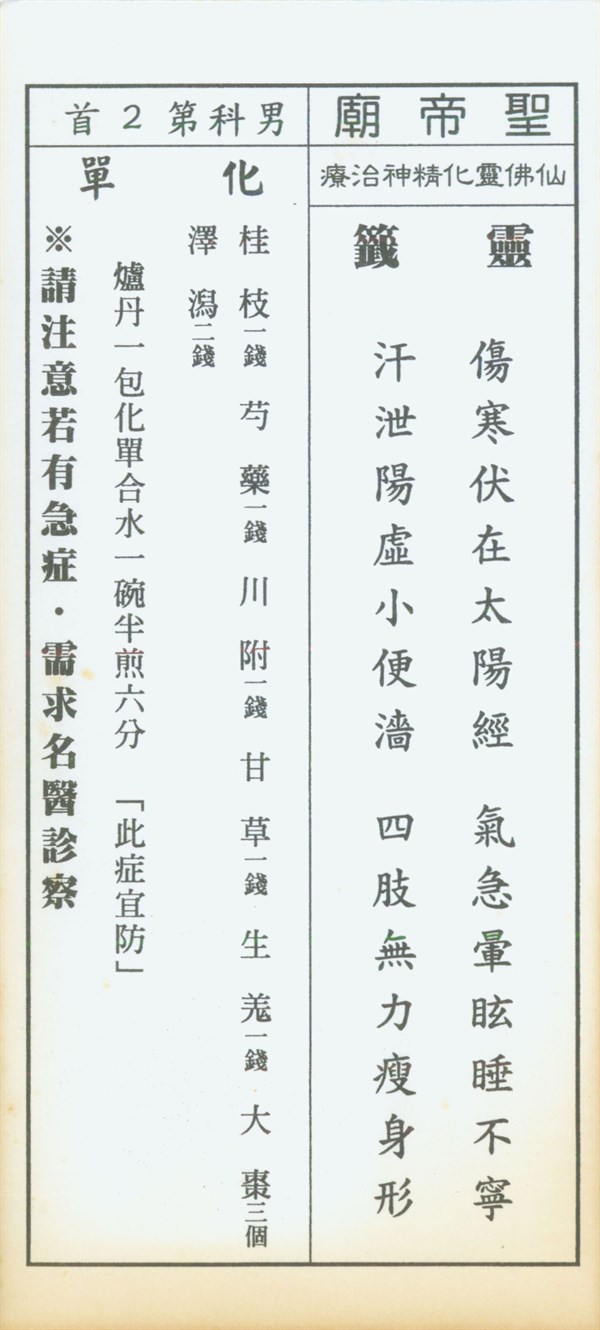 聖帝廟
仙佛靈化精神治療
靈籤
傷寒伏在太陽經 氣急暈眩睡不寧
汗泄陽虛小便濇 四肢無力瘦身形
男科第2首
化單
桂枝一錢 芍藥一錢 川附一錢 甘草一錢 生羌一錢 大棗三個
澤瀉二錢
爐丹一包化單合水一碗半煎六分 「此症宜防」
※請注意若有急症・需求名醫診察